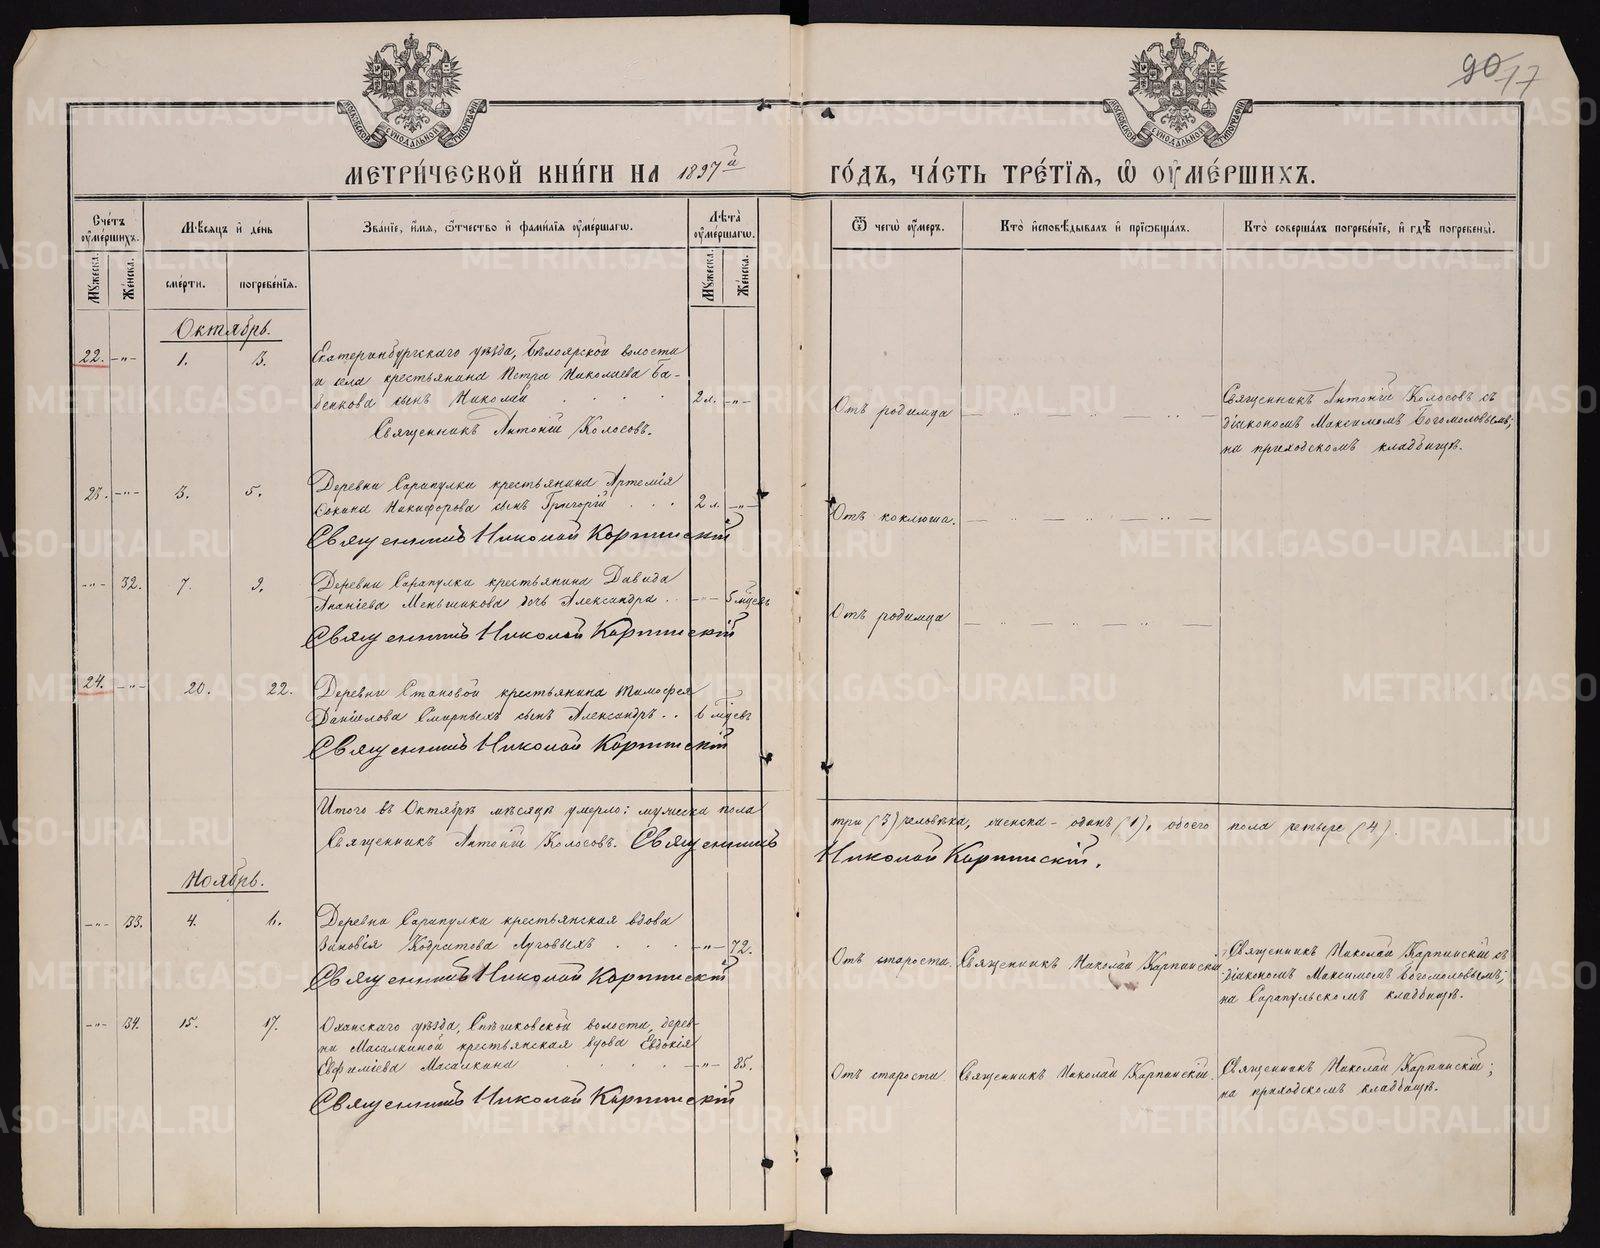 90 17
МЕТРИ́ЧЕСКОЙ КНИ́ГИ НА 1897й ГО́ДЪ, ЧА́СТЬ ТРЕ́ТІѦ, Ѿ ОУМЕ́РШИХЪ.
Сче́тъ оуме́ршихъ.
Мѣсяцъ и де́нь
Зва́ніе, и́мя, о́тчество и фами́лія оуме́ршагѡ.
Лѣта̀ оуме́ршагѡ.
Ѿ чегѡ̀ оу́меръ.
Кто̀ исповѣ́дывалъ и пріѡбща́лъ.
Кто̀ соверша́лъ погребе́ніе, и гдѣ̀ погребены̀.
Му́жеска.
Же́нска.
сме́рти.
погребе́нія.
Му́жеска.
Же́нска.
Октябрь.
22. -„- 1. 3.
Екатеринбургскаго уѣзда, Бѣлоярской волости
и села крестьянина Петра Николаева Ба-
бенкова сынъ Николай 2 л. -„-
Священникъ Антоній Колосовъ.
Отъ родимца
Священникъ Антоній Колосовъ съ
діакономъ Максимомъ Богомоловымъ;
на приходскомъ кладбищѣ.
23. -„- 3. 5.
Деревни Сарапулки крестьянина Артемія
Никифорова сынъ Григорій 2 л. -„-
Священникъ Николай Карпинскій
Отъ коклюша.
-„- 32. 7. 9.
Деревни Сарапулки крестьянина Давида
Ананіева Меньшикова дочь Александра -„- 5 мѣсяц
Священникъ Николай Карпинскій
Отъ родимца
24. -„- 20. 22.
Деревни Становой крестьянина Тимофея
Даніилова Смирныхъ сынъ Александръ 6 мѣсяц
Священникъ Николай Карпинскій
Итого въ Октябрѣ мѣсяцѣ умерло: мужеска пола три (3) человѣка, женска - одинъ (1), обоего пола четыре (4).
Священникъ Антоній Колосовъ. Священникъ Николай Карпинскій.
Ноябрь.
-„- 33. 4. 6.
Деревни Сарапулки крестьянская вдова
Зиновія Кодратова Луговыхъ -„- 72.
Священникъ Николай Карпинскій
Отъ старости. Священникъ Николай Карпинскій
Священникъ Николай Карпинскій съ
діакономъ Максимомъ Богомоловымъ;
на Сарапульскомъ кладбищѣ.
-„- 34. 15. 17.
Оханскаго уѣзда, волости, дерев-
ни Масалкиной крестьянская вдова Евдокія
Евфиміева Масалкина -„- 85.
Священникъ Николай Карпинскій
Отъ старости Священникъ Николай Карпинскій.
Священникъ Николай Карпинскій;
на приходскомъ кладбищѣ.
METRIKI.GASO-URAL.RU